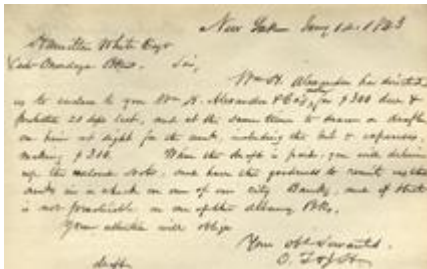 New York Jany 12. 1843
Hamilton White Esqr
Cash Onondaga Bk. Sir,
Wm H. Alexander has directed
us to enclose to you Wm H. Alexander & Co's for $300 due &
20 Sept last, and at the same time to draw a draft
on him at sight for the amt, including the int & expenses,
making $ When the draft is paid, you will deliver
up the enclosed note, and have the goodness to remit us the
amt in a check on one of our city Banks, and if that
is not practicable on one of the Albany Bks.
Your attention will oblige
Your Obt Servants